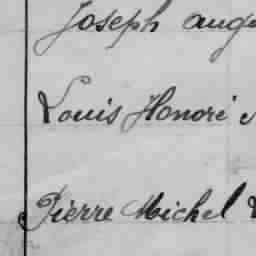 Joseph aug
Louis Honoré
Pierre Michel